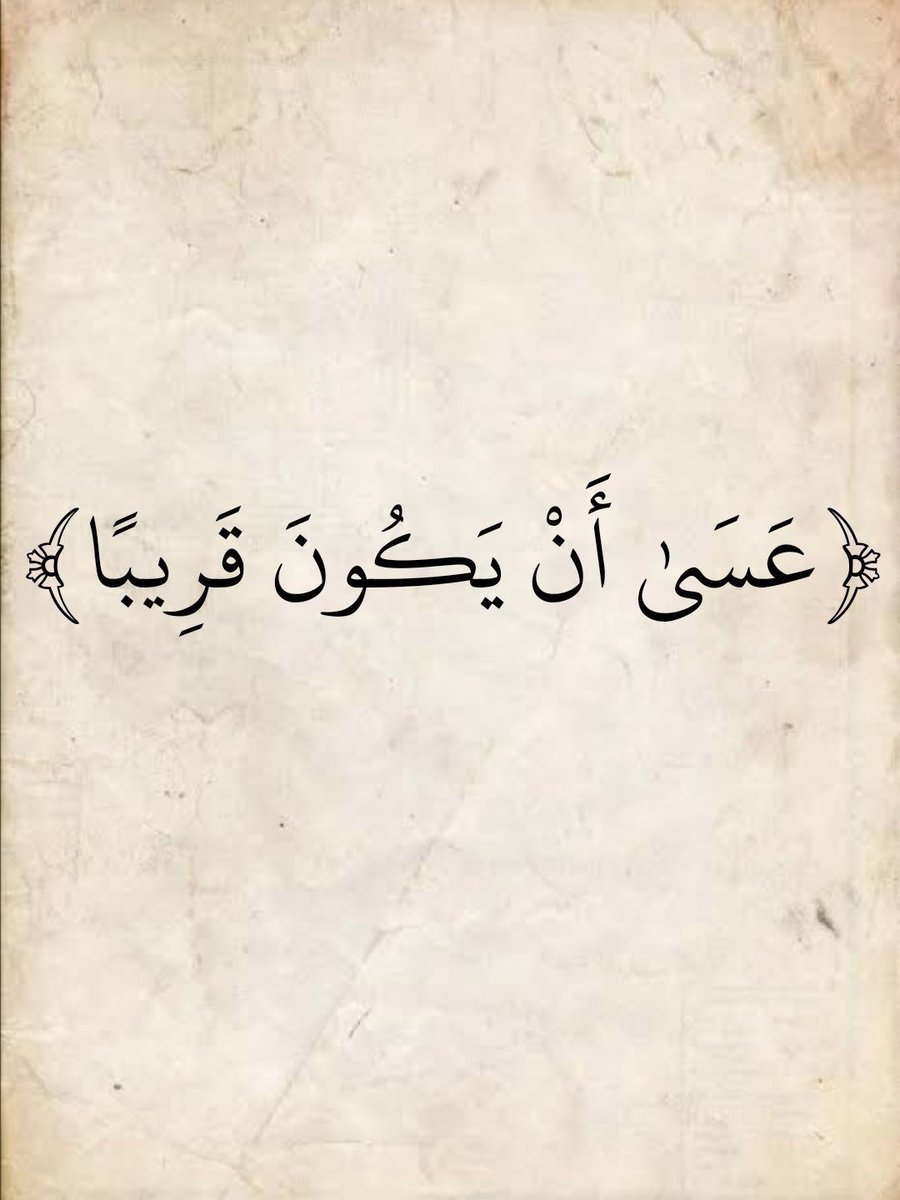 ﴿عَسَىٰ أَنْ يَكُونَ قَرِيبًا﴾